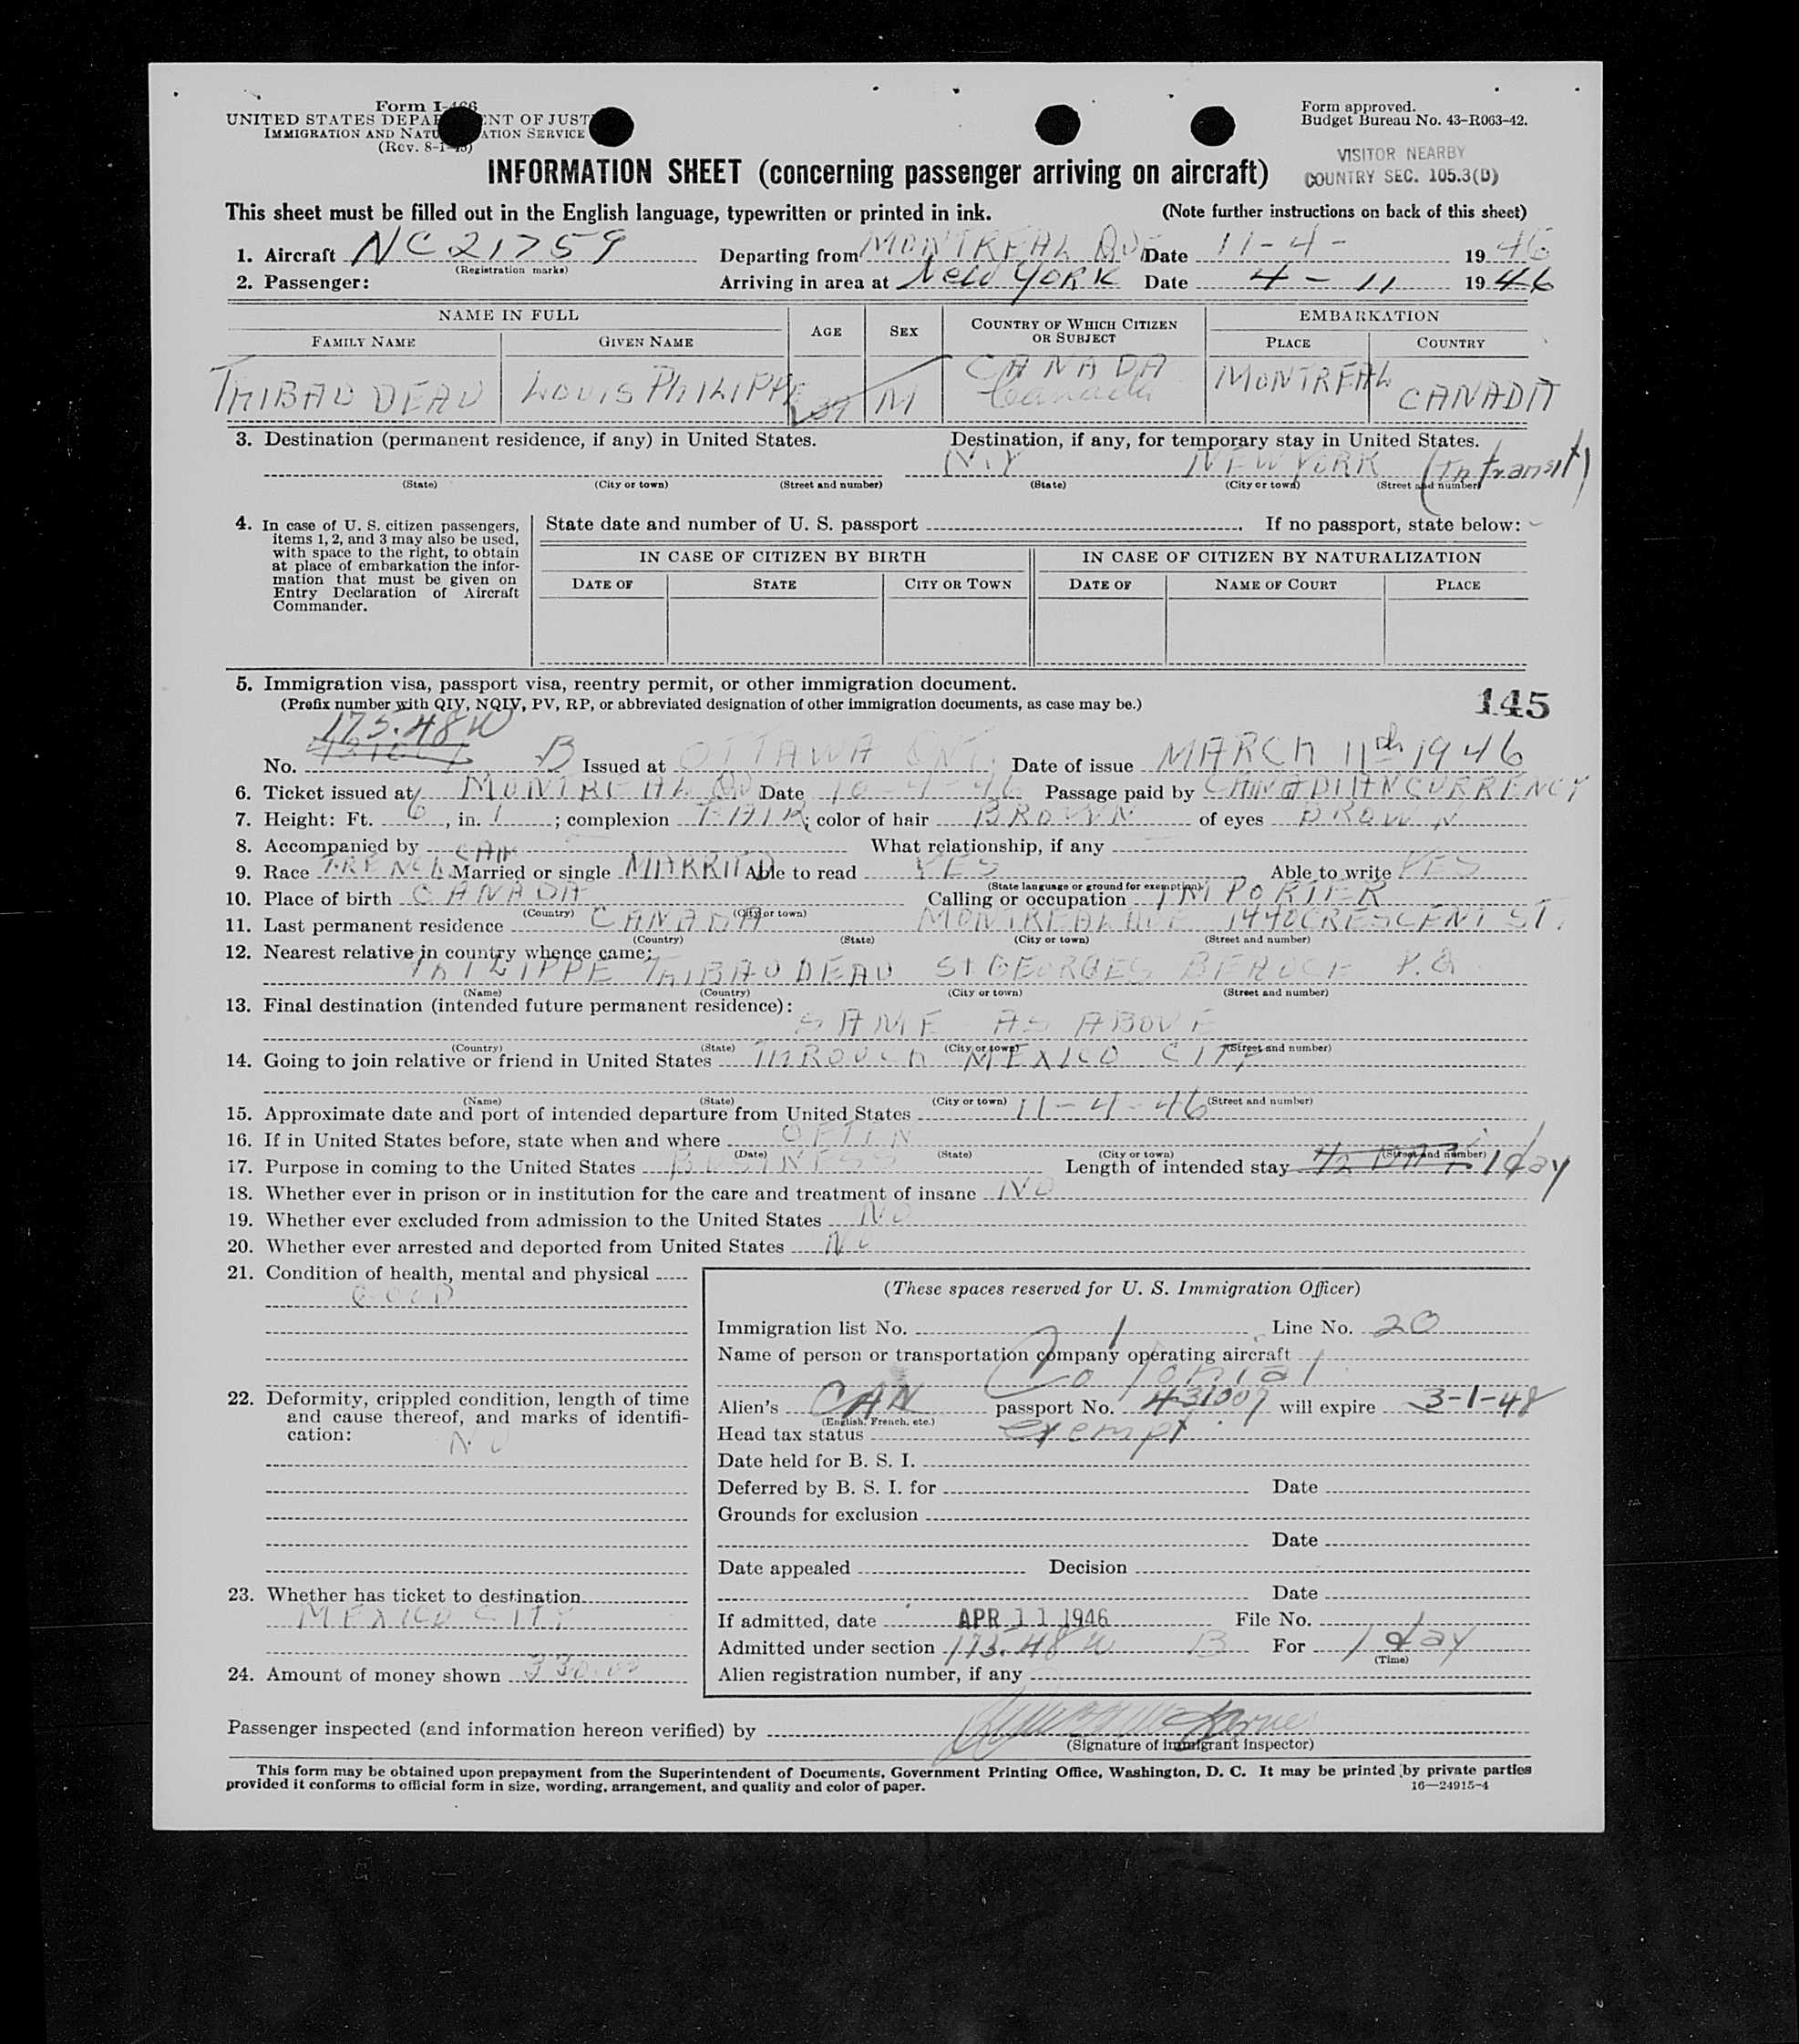 Form I-466
UNITED STATES DEPARTMENT OF JUSTICE
IMMIGRATION AND NATURALIZATION SERVICE
(Rev. 8-1-45)
Form approved.
Budget Bureau No. 43-R063-42.
VISITOR NEARBY
COUNTRY SEC. 105.3(D)
INFORMATION SHEET (concerning passenger arriving on aircraft)
This sheet must be filled out in the English language, typewritten or printed in ink. (Note further instructions on back of this sheet)
1. Aircraft NC21759 Departing from MONTREAL QUE Date 11-4- 1946
(Registration marks)
2. Passenger: Arriving in area at New York Date 4-11 1946
NAME IN FULL AGE SEX COUNTRY OF WHICH CITIZEN OR SUBJECT EMBARKATION
FAMILY NAME GIVEN NAME PLACE COUNTRY
CANADA
THIBAUDEAU LOUIS PHILIPPE 39 M Canada MONTREAL CANADA
3. Destination (permanent residence, if any) in United States. Destination, if any, for temporary stay in United States.
N.Y NEW YORK (In transit)
(State) (City or town) (Street and number) (State) (City or town) (Street and number)
4. In case of U. S. citizen passengers, items 1, 2, and 3 may also be used, with space to the right, to obtain at place of embarkation the information that must be given on Entry Declaration of Aircraft Commander.
State date and number of U. S. passport . If no passport, state below:
IN CASE OF CITIZEN BY BIRTH IN CASE OF CITIZEN BY NATURALIZATION
DATE OF STATE CITY OR TOWN DATE OF NAME OF COURT PLACE
5. Immigration visa, passport visa, reentry permit, or other immigration document.
(Prefix number with QIV, NQIV, PV, RP, or abbreviated designation of other immigration documents, as case may be.)
145
175.48W
No. B Issued at OTTAWA ONT. Date of issue MARCH 11th 1946
6. Ticket issued at MONTREAL QUE Date 10-4-46 Passage paid by CANADIAN CURRENCY
7. Height: Ft. 6, in. 1; complexion FAIR; color of hair BROWN of eyes BROWN
8. Accompanied by What relationship, if any
CAN
9. Race FRENCH Married or single MARRIED Able to read YES Able to write YES
(State language or ground for exemption)
10. Place of birth CANADA Calling or occupation IMPORTER
(Country) (City or town)
11. Last permanent residence CANADA MONTREAL QUE 1440 CRESCENT ST.
(Country) (State) (City or town) (Street and number)
12. Nearest relative in country whence came:
PHILIPPE THIBAUDEAU ST GEORGES BEAUCE P.Q
(Name) (Country) (City or town) (Street and number)
13. Final destination (intended future permanent residence):
SAME AS ABOVE
(Country) (State) (City or town) (Street and number)
14. Going to join relative or friend in United States THROUGH MEXICO CITY
(Name) (State) (City or town) (Street and number)
15. Approximate date and port of intended departure from United States 11-4-46
16. If in United States before, state when and where OFTEN
(Date) (State) (City or town) (Street and number)
17. Purpose in coming to the United States BUSINESS Length of intended stay 1/2 DAY 1 day
18. Whether ever in prison or in institution for the care and treatment of insane NO
19. Whether ever excluded from admission to the United States NO
20. Whether ever arrested and deported from United States NO
21. Condition of health, mental and physical
GOOD
22. Deformity, crippled condition, length of time and cause thereof, and marks of identification:
NO
23. Whether has ticket to destination
MEXICO CITY
24. Amount of money shown 330.00
(These spaces reserved for U. S. Immigration Officer)
Immigration list No. 1 Line No. 20
Name of person or transportation company operating aircraft
Colonial
Alien's CAN passport No. 431007 will expire 3-1-48
(English, French, etc.)
Head tax status exempt
Date held for B. S. I.
Deferred by B. S. I. for Date
Grounds for exclusion
Date
Date appealed Decision
Date
If admitted, date APR 11 1946 File No.
Admitted under section 175.48 W B For 1 day
(Time)
Alien registration number, if any
Passenger inspected (and information hereon verified) by
(Signature of immigrant inspector)
This form may be obtained upon prepayment from the Superintendent of Documents, Government Printing Office, Washington, D. C. It may be printed by private parties
provided it conforms to official form in size, wording, arrangement, and quality and color of paper. 16—24915-4